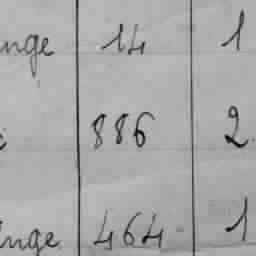 nge 14 1
886 2.
nge 464 1